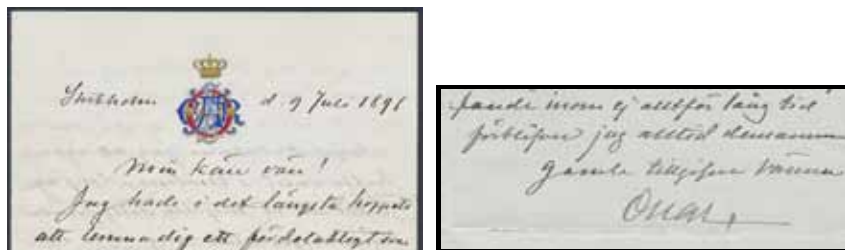 Stockholm d. 9 Juli 1896
Min käre vän!
Jag hade i det längsta hoppats
att lemna dig ett fördelaktigt
inom ej alltför lång tid
förblifver jag alltid densamme
gamle tillgifne vännen
Oscar